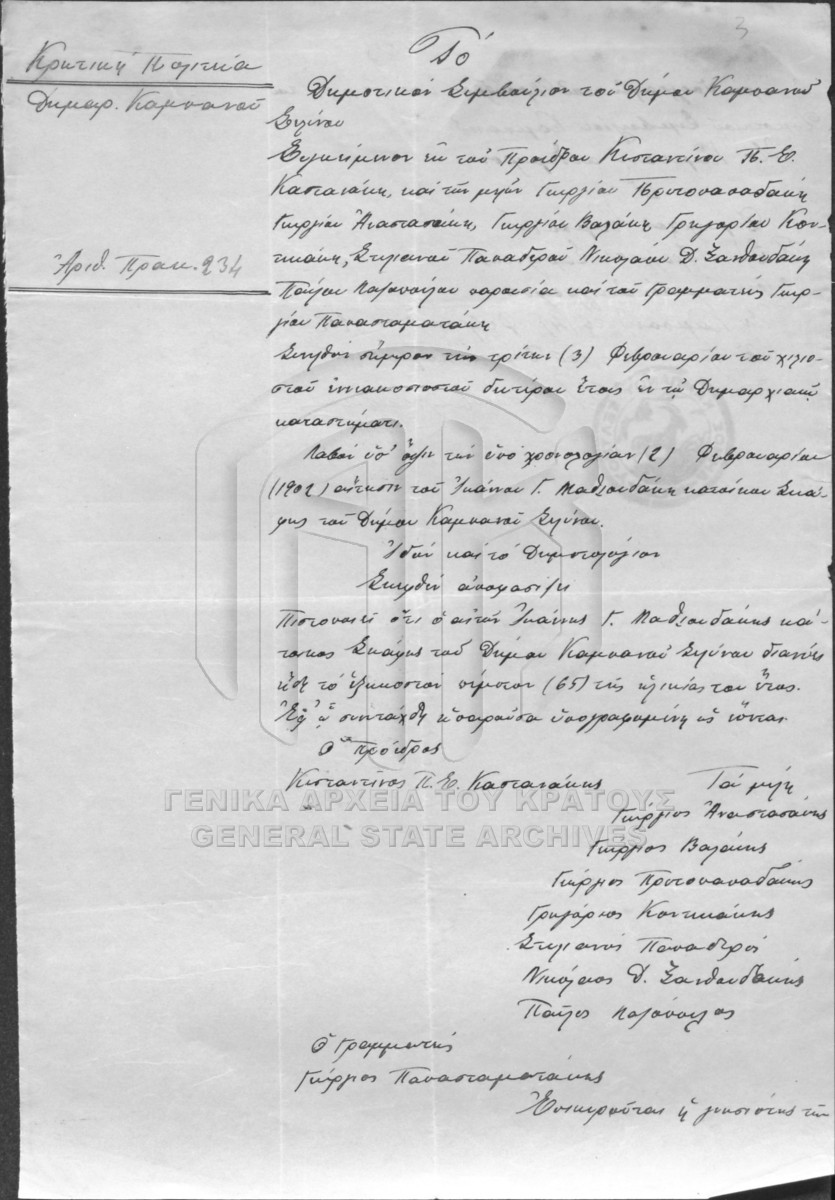 3
Κρητική Πολιτεία
Δημαρ. Καμπανοῦ
Ἀριθ. Πρακ. 234
Τό
Δημοτικόν Συμβούλιον τοῦ Δήμου Καμπανοῦ
Σελίνου
Συγκείμενον ἐκ τοῦ Προέδρου Κωσταντίνου Π. Ε.
Καστανάκη, καί τῶν μελῶν Γεωργίου Πρωτοπαπαδάκη
Γεωργίου Ἀναστασάκη, Γεωργίου Βαλάκη Γρηγορίου Κον-
τικάκη, Στυλιανοῦ Παπαδεροῦ Νικολάου Δ. Ξανθουδάκη
Παύλου παρουσία καί τοῦ Γραμματέως Γεωρ-
γίου Παπασταματάκη
Συνελθόν σήμερον τήν τρίτην (3) Φεβρουαρίου τοῦ χιλιο-
στοῦ ἐννακοσιοστοῦ δευτέρου ἔτους ἐν τῷ Δημαρχιακῷ
καταστήματι.
Λαβόν ὑπ' ὄψιν τήν ὑπό χρονολογίαν (2) Φεβρουαρίου
(1902) αἴτησιν τοῦ Ἰωάννου Γ. Μαθιουδάκη κατοίκου Σκά-
φης τοῦ Δήμου Καμπανοῦ Σελίνου.
Ἰδόν καί τό Δημοτολόγιον
Σκεφθέν ἀποφασίζει
Πιστοποιεῖ ὅτι ὁ αἰτῶν Ἰωάννης Γ. Μαθιουδάκης κά-
τοικος Σκάφης τοῦ Δήμου Καμπανοῦ Σελίνου διανύει
ἤδη τό ἑξηκοστόν πέμπτον (65) τῆς ἡλικίας του ἔτος.
Ἐφ' ᾧ συνετάχθη ἡ παροῦσα ὑπογραφομένη ὡς ἕπεται.
Ὁ Πρόεδρος
Κωσταντίνος Π. Ε. Καστανάκης
Τά μέλη
Γεώργιος Ἀναστασάκης
Γεώργιος Βαλάκης
Γεώργιος Πρωτοπαπαδάκης
Γρηγόριος Κοντικάκης
Στυλιανός Παπαδερός
Νικόλαος Δ. Ξανθουδάκης
Παῦλος
Ὁ Γραμματεύς
Γεώργιος Παπασταματάκης
Ἐπικυροῦται ἡ γνησιότης τῶν
ΓΕΝΙΚΑ ΑΡΧΕΙΑ ΤΟΥ ΚΡΑΤΟΥΣ
GENERAL STATE ARCHIVES